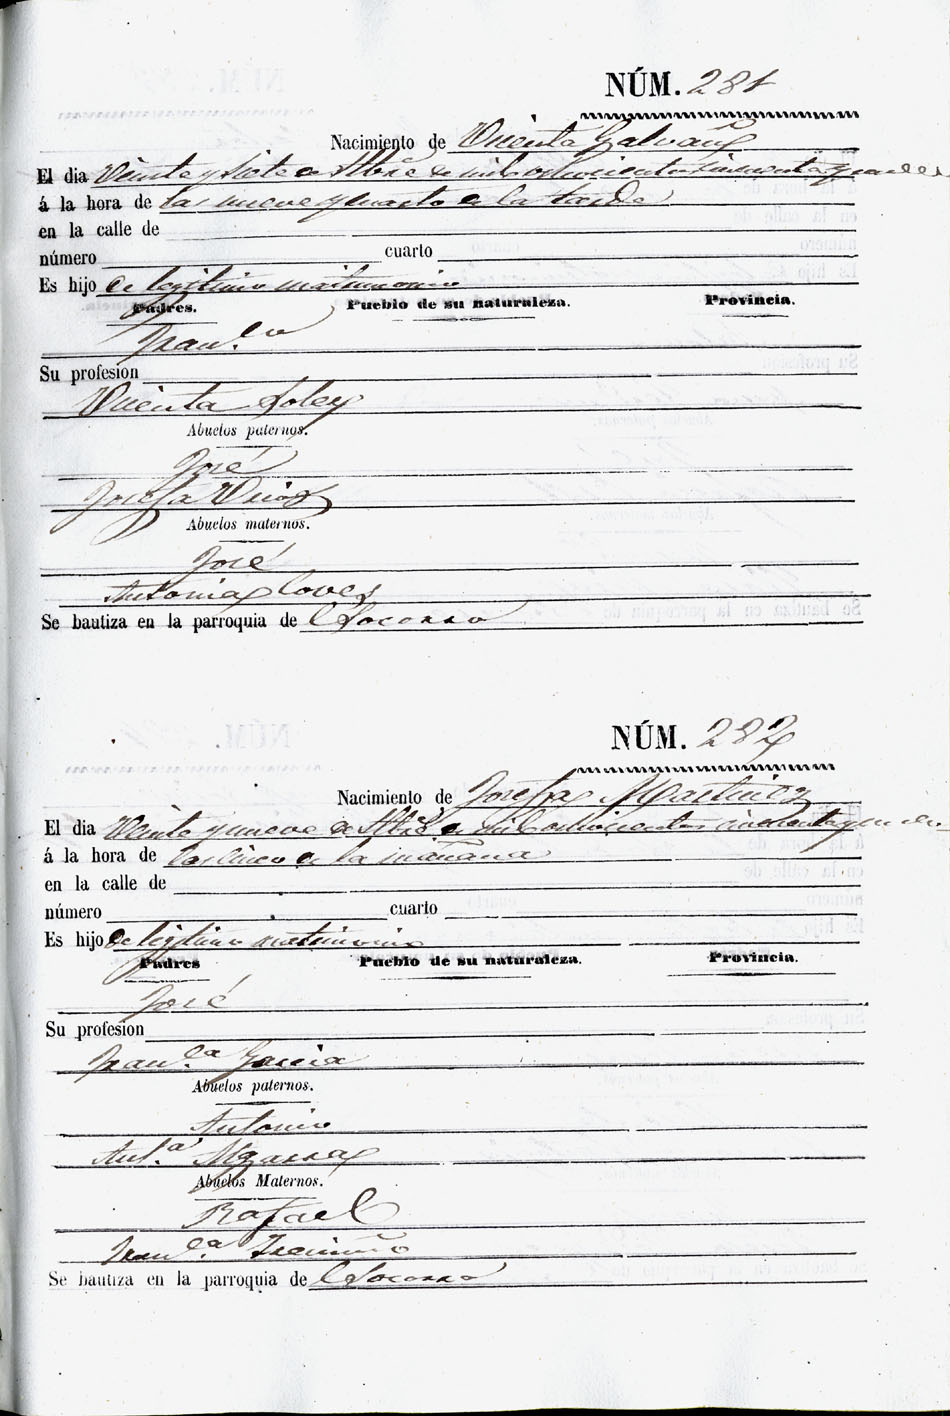 NÚM. 281
Nacimiento de Vicenta Galvañ
El dia Veinte y siete de Sbre de mil ochocientos cincuenta y
á la hora de las nueve y cuarto de la tarde
en la calle de
número cuarto
Es hijo de legitimo matrimonio
Padres. Pueblo de su naturaleza. Provincia.
Fran.co
Su profesion
Vicenta Soler
Abuelos paternos.
José
Josefa
Abuelos maternos.
José
Antonia Cover
Se bautiza en la parroquia de Socorro
NÚM. 282
Nacimiento de Josefa Martinez
El dia Veinte y nueve de Sbre de mil ochocientos cincuenta y
á la hora de las cinco de la mañana
en la calle de
número cuarto
Es hijo de legitimo matrimonio
Padres Pueblo de su naturaleza. Provincia.
José
Su profesion
Fran.ca Garcia
Abuelos paternos.
Antonio
Ant.a
Abuelos Maternos.
Rafael
Fran.ca
Se bautiza en la parroquia de Socorro